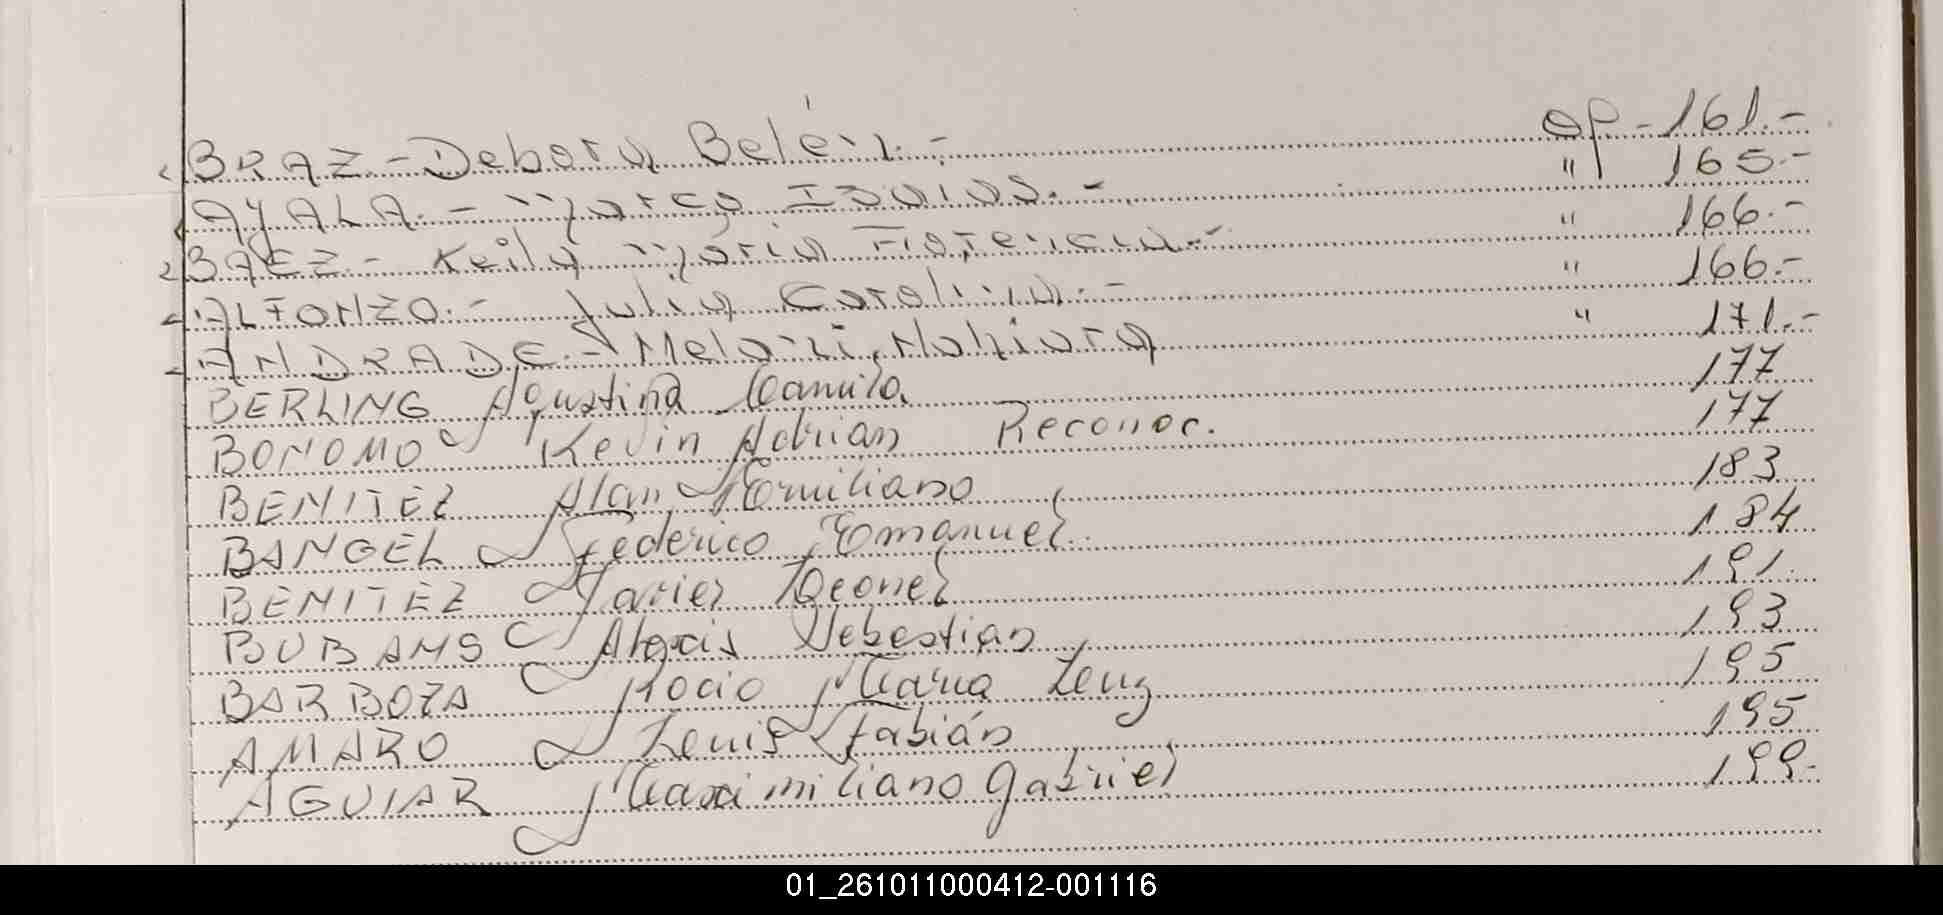 BRAZ - Debora Belén. - OP - 161.-
AYALA. - Marcos Isaias. - " 165.-
BAEZ - Keila Maria Florencia.- " 166.-
ALFONZO. - Julia Carolina. - " 166.-
ANDRADE. - Melani Nahiara " 171.-
BERLING Agustina Camila. 177
BONOMO Kevin Adrian Reconoc. 177
BENITEZ Alan Emiliano 183
BANGEL Federico Emanuel 184
BENITEZ Javier Leonel 191.
BUBANS Alexis Sebastian 193
BARBOZA Rocio Maria Luz 195
AMARO Luis Fabián 195
AGUIAR Maximiliano Gabriel 199.
01_261011000412-001116